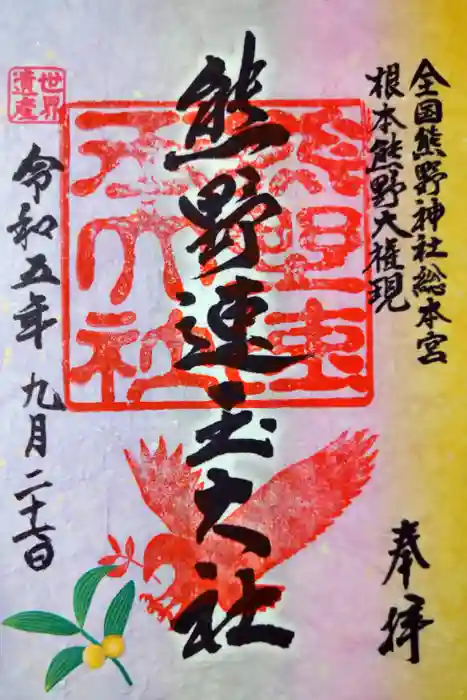 全国熊野神社総本宮
根本熊野大権現
奉拝
熊野速玉大社
熊野速
玉大社
世界
遺産
令和五年九月二十六日